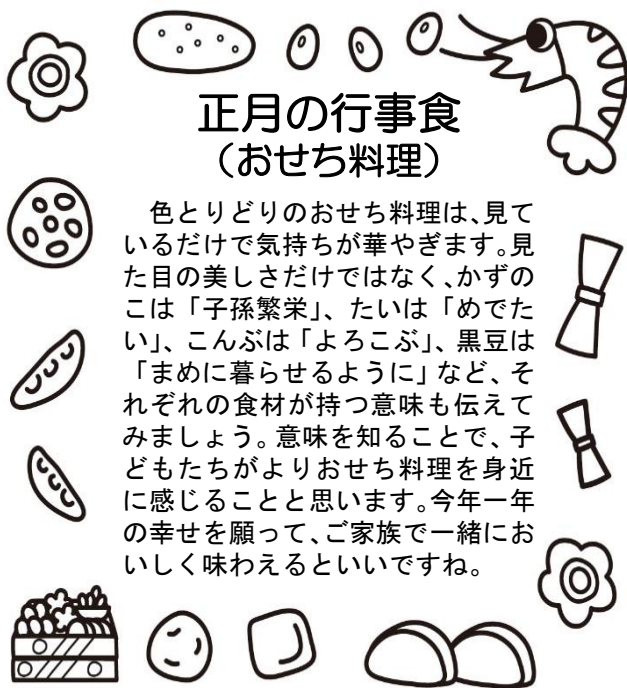 正月の行事食
（おせち料理）
　色とりどりのおせち料理は、見て
いるだけで気持ちが華やぎます。見
た目の美しさだけではなく、かずの
こは「子孫繁栄」、たいは「めでた
い」、こんぶは「よろこぶ」、黒豆は
「まめに暮らせるように」など、そ
れぞれの食材が持つ意味も伝えて
みましょう。意味を知ることで、子
どもたちがよりおせち料理を身近
に感じることと思います。今年一年
の幸せを願って、ご家族で一緒にお
いしく味わえるといいですね。